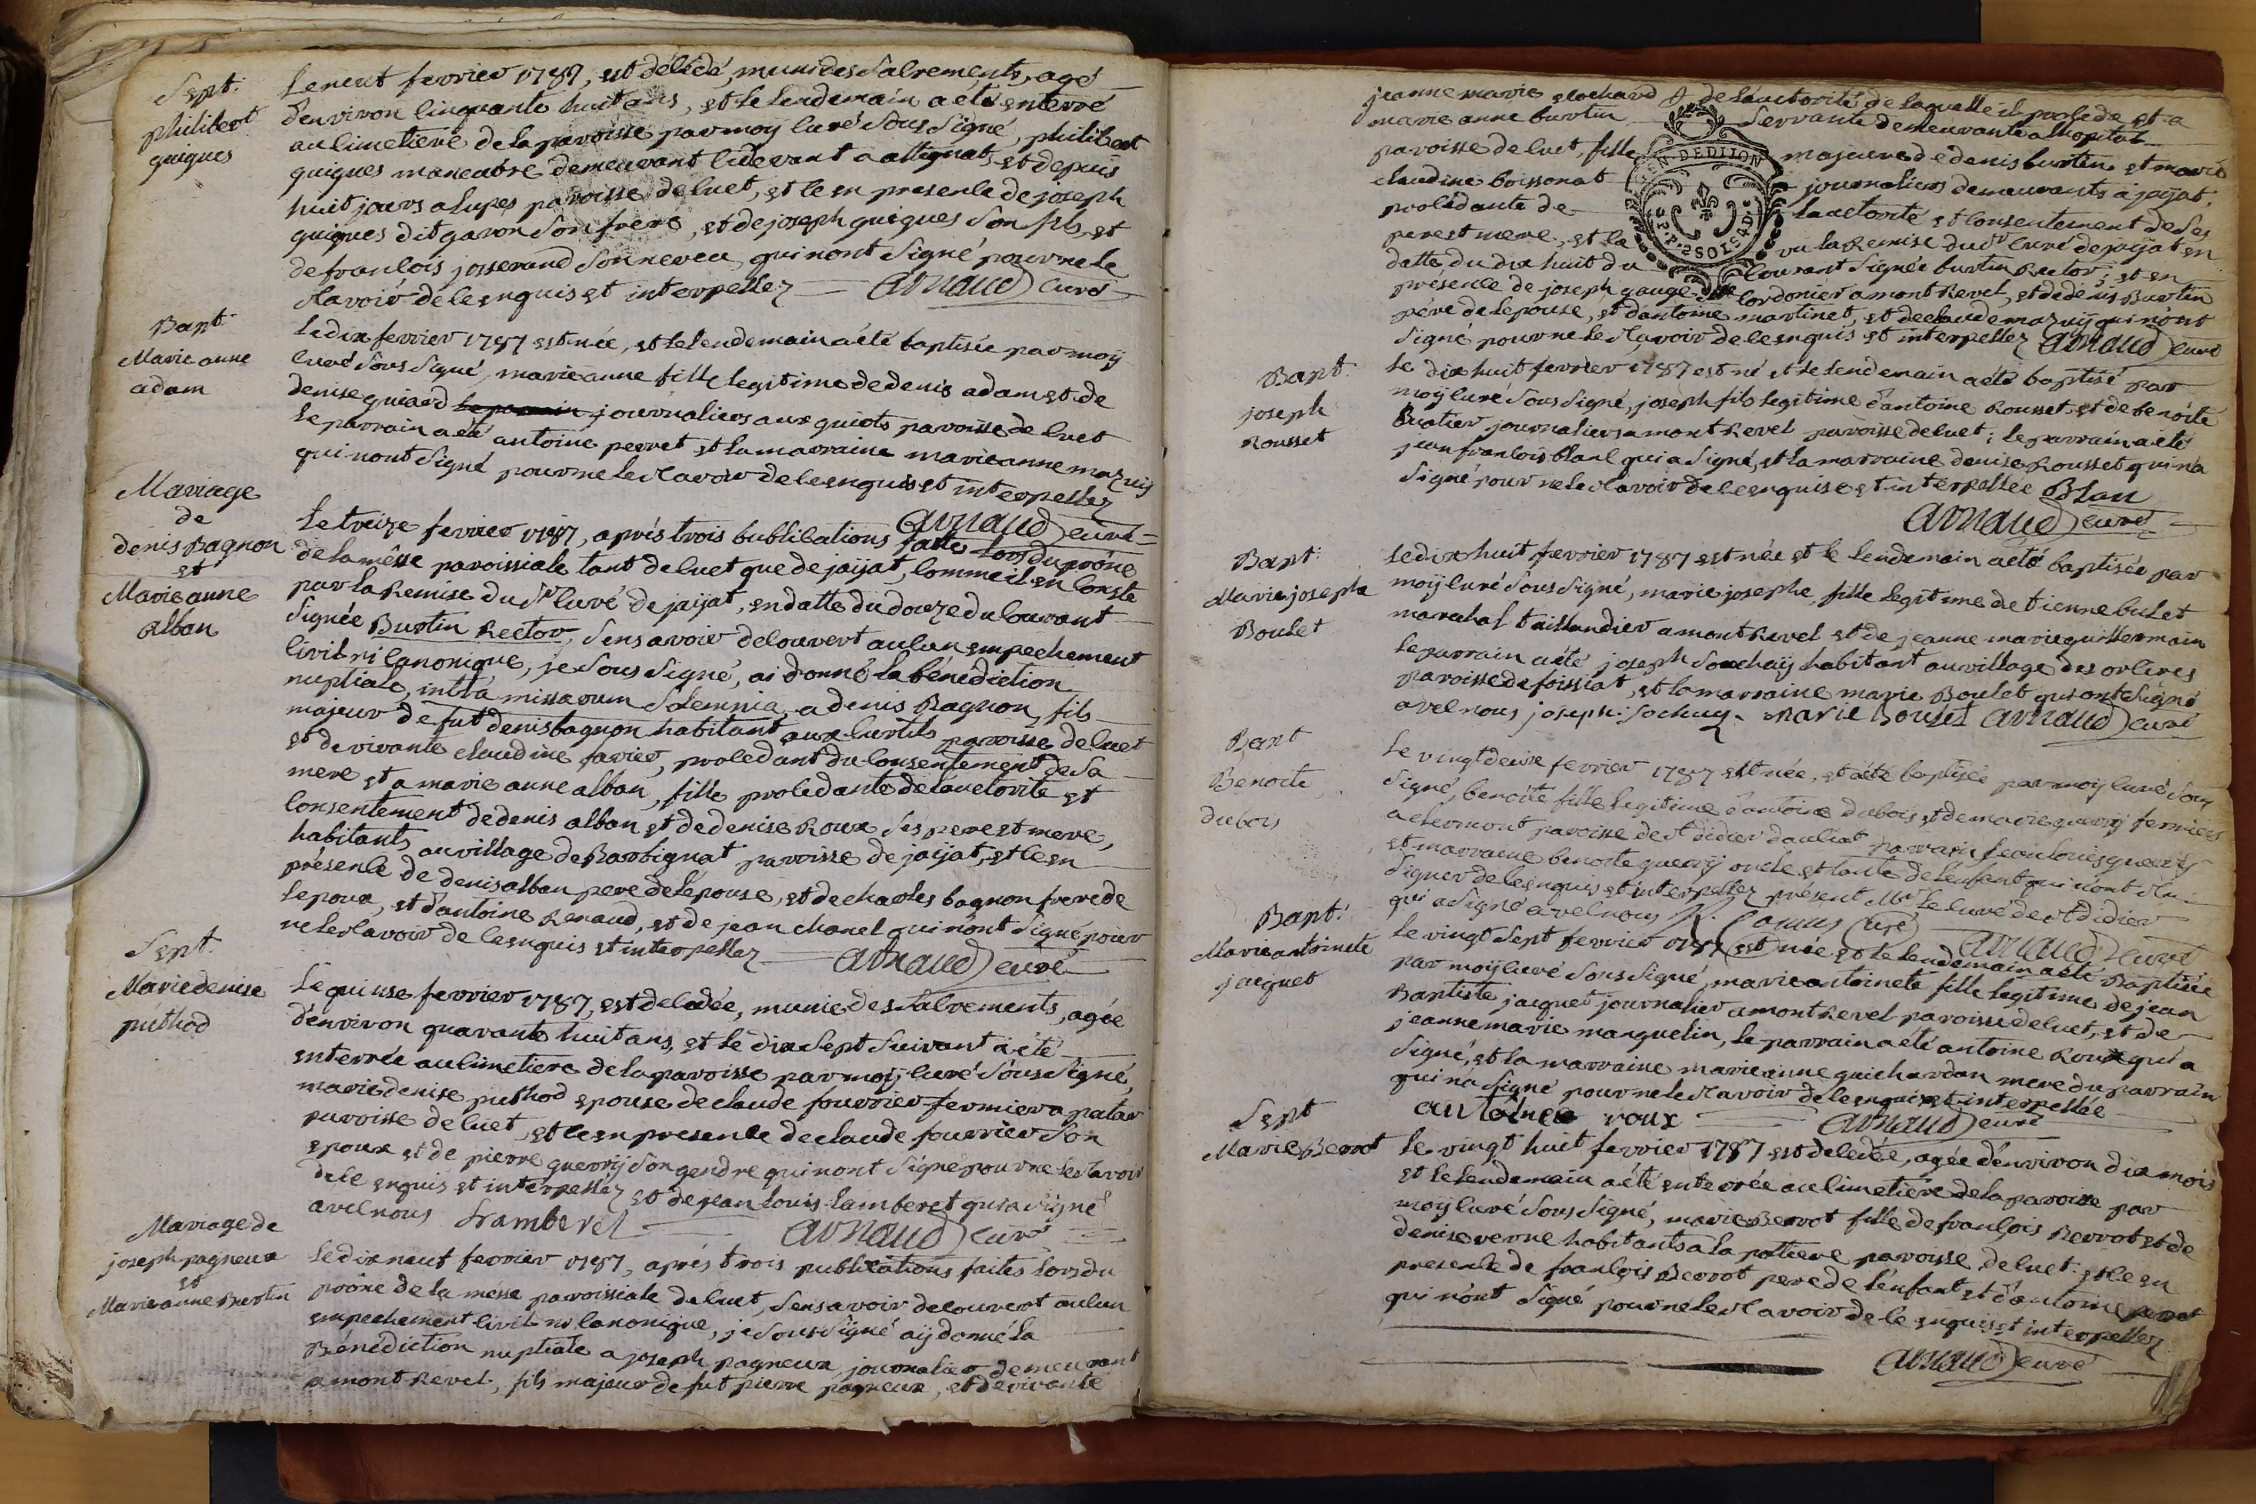 Sept:
philibert
guigues
Le neuf fevrier 1787, est décédé, muni des sacrements, agé
d'environ cinquante huit ans, et le lendemain a été enterré
au cimetiere de la paroisse par moÿ curé sous signé, philibert
guigues manœuvre demeurant cidevant a attignat, et depuis
huit jours a lupes paroisse de cuet, et ce en presence de joseph
guigues dit garon son frere, et de joseph guigues son fils, et
de francois josserand son neveu, qui n'ont signé pour ne le
sçavoir de ce enquis et interpellez arnaud curé
Bapt:
Marie anne
adam
Le dix fevrier 1787 est née, et le lendemain a été baptisée par moÿ
curé sous signé, marie anne fille legitime de denis adam et de
denise guiard journaliers aux guiots paroisse de cuet
le parrain a été antoine perret et la marraine marie anne mazuij
qui n'ont signé pour ne le sçavoir de ce enquis et interpellez
arnaud curé
Mariage
de
denis Bagnon
et
Marie anne
alban
Le treize fevrier 1787, aprés trois bublications faites lors du prône
de la mêsse paroissiale tant de cuet que de jaÿat, comme il en conste
par la Remise du Sr curé de jaÿat, en datte du douze du courant
signée Burtin Rector, sens avoir decouvert aucun empechement
civil ni canonique, je sous signé, ai donné la bénédiction
nuptiale, intra missarum solemnia, a denis Bagnon, fils
majeur de fut denis bagnon habitant aux curtils paroisse de cuet
et de vivante claudine favier, procedant du consentement de sa
mere et a marie anne alban, fille procedante de l'auctorité et
consentement de denis alban et de denise Roux ses pere et mere,
habitants au village de Barbignat paroisse de jaÿat, et ce en
présence de denis alban pere de l'epouse, et de charles bagnon frere de
l'epoux, et d'antoine Renaud, et de jean chanel qui n'ont signé pour
ne le sçavoir de ce enquis et interpellez arnaud curé
Sept.
Marie denise
puthod
Le quinse fevrier 1787, est decedée, munie des sacrements, agée
d'environ quarante huit ans, et le dix sept suivant a été
enterrée au cimetiere de la paroisse par moÿ curé sous signé,
marie denise puthod epouse de claude fourrier fermier a patar
paroisse de cuet, et ce en presence de claude fourrier son
epoux et de pierre guerrÿ son gendre qui n'ont signé pour ne le sçavoir
de ce enquis et interpellez et de jean louis lamberet qui a signé
avec nous Lamberet arnaud curé
Mariage de
joseph pagneux
et
Marie anne Burtin
Le dix neuf fevrier 1787, aprés trois publications faites lors du
prône de la mésse paroissiale de cuet, sens avoir decouvert aucun
empechement civil ni canonique, je sous signé aÿ donné la
Bénédiction nuptiale a joseph pagneux journalier demeurant
a mont Revel, fils majeur de fut pierre pagneux, et de vivante
jeanne marie rochard de l'auctorité de laquelle il procede et a
marie anne burtin servante demeurante a l'hopital
paroisse de cuet, fille majeure de denis burtin et marie
claudine boissonat journaliers demeurants à jaÿat,
procédante de l'auctorité et consentement de ses
pere et mere, et la vu la Remise du Sr curé de jaÿat en
datte du dix huit du courant signée burtin Rector; et en
présence de joseph gauge cordonier a mont Revel, et de denis Burtin
pére de l'epouse, et d'antoine martinet, et de claude mazuij qui n'ont
signé pour ne le sçavoir de ce enquis et interpellez arnaud curé
Bapt.
joseph
Rousset
Le dix huit fevrier 1787 est né et le lendemain a été baptisé par
moÿ curé sous signé, joseph fils legitime d'antoine Rousset et de benoite
Buatier journaliers a mont Revel paroisse de cuet; le parrain a été
jean francois blanc qui a signé, et la marraine denise Rousset qui n'a
signé pour ne le sçavoir de ce enquise et interpellée Blan
arnaud curé
Bapt:
Marie josephe
Boulet
Le dix huit fevrier 1787 est née et le lendemain a été baptisée par
moÿ curé sous signé, marie josephe, fille legitime d'etienne bulet
marechal taillandier a mont Revel et de jeanne marie guillermain
le parrain a été joseph sochaÿ habitant au village des orcires
paroisse de foissiat, et la marraine marie Boulet qui ont signé
avec nous joseph: sochay. marie Boulet arnaud curé
Bapt
Benoite
dubois
Le vingt deux fevrier 1787 est née, et a été baptisée par moÿ curé sous
signé, benoite fille legitime d'antoine dubois et de marie guerrÿ fermiers
a clermont paroisse de st didier d'auciat parrain jean louis guerrÿ
et marraine benoite guerrÿ oncle et tante de l'enfant qui n'ont sçu
signer de ce enquis et interpellez présent Mr le curé de st didier
qui a signé avec nous curé arnaud curé
Bapt:
Marie antoinete
jacquet
Le vingt sept fevrier 1787 est née et le lendemain a été Baptisée
par moÿ curé sous signé, marie antoinete fille legitime de jean
Baptiste jacquet journalier a mont Revel paroisse de cuet, et de
jeanne marie manguelin, le parrain a été antoine Roux qui a
signé, et la marraine marie anne guichardan mere du parrain
qui n'a signé pour ne le sçavoir de ce enquise et interpellée
antoinee roux arnaud curé
Sept
Marie Berrot
Le vingt huit fevrier 1787 est decedée, agée d'environ dix mois
et le lendemain a été enterrée au cimetiére de la paroisse par
moÿ curé sous signé, marie Berrot fille de françois Berrot et de
denise verne habitants a la potiere paroisse de cuet. et ce en
presence de francois Berrot pere de l'enfant et d'antoine peret
qui n'ont signé pour ne le sçavoir de ce enquis et interpellez
arnaud curé
GEN. DE DIJON